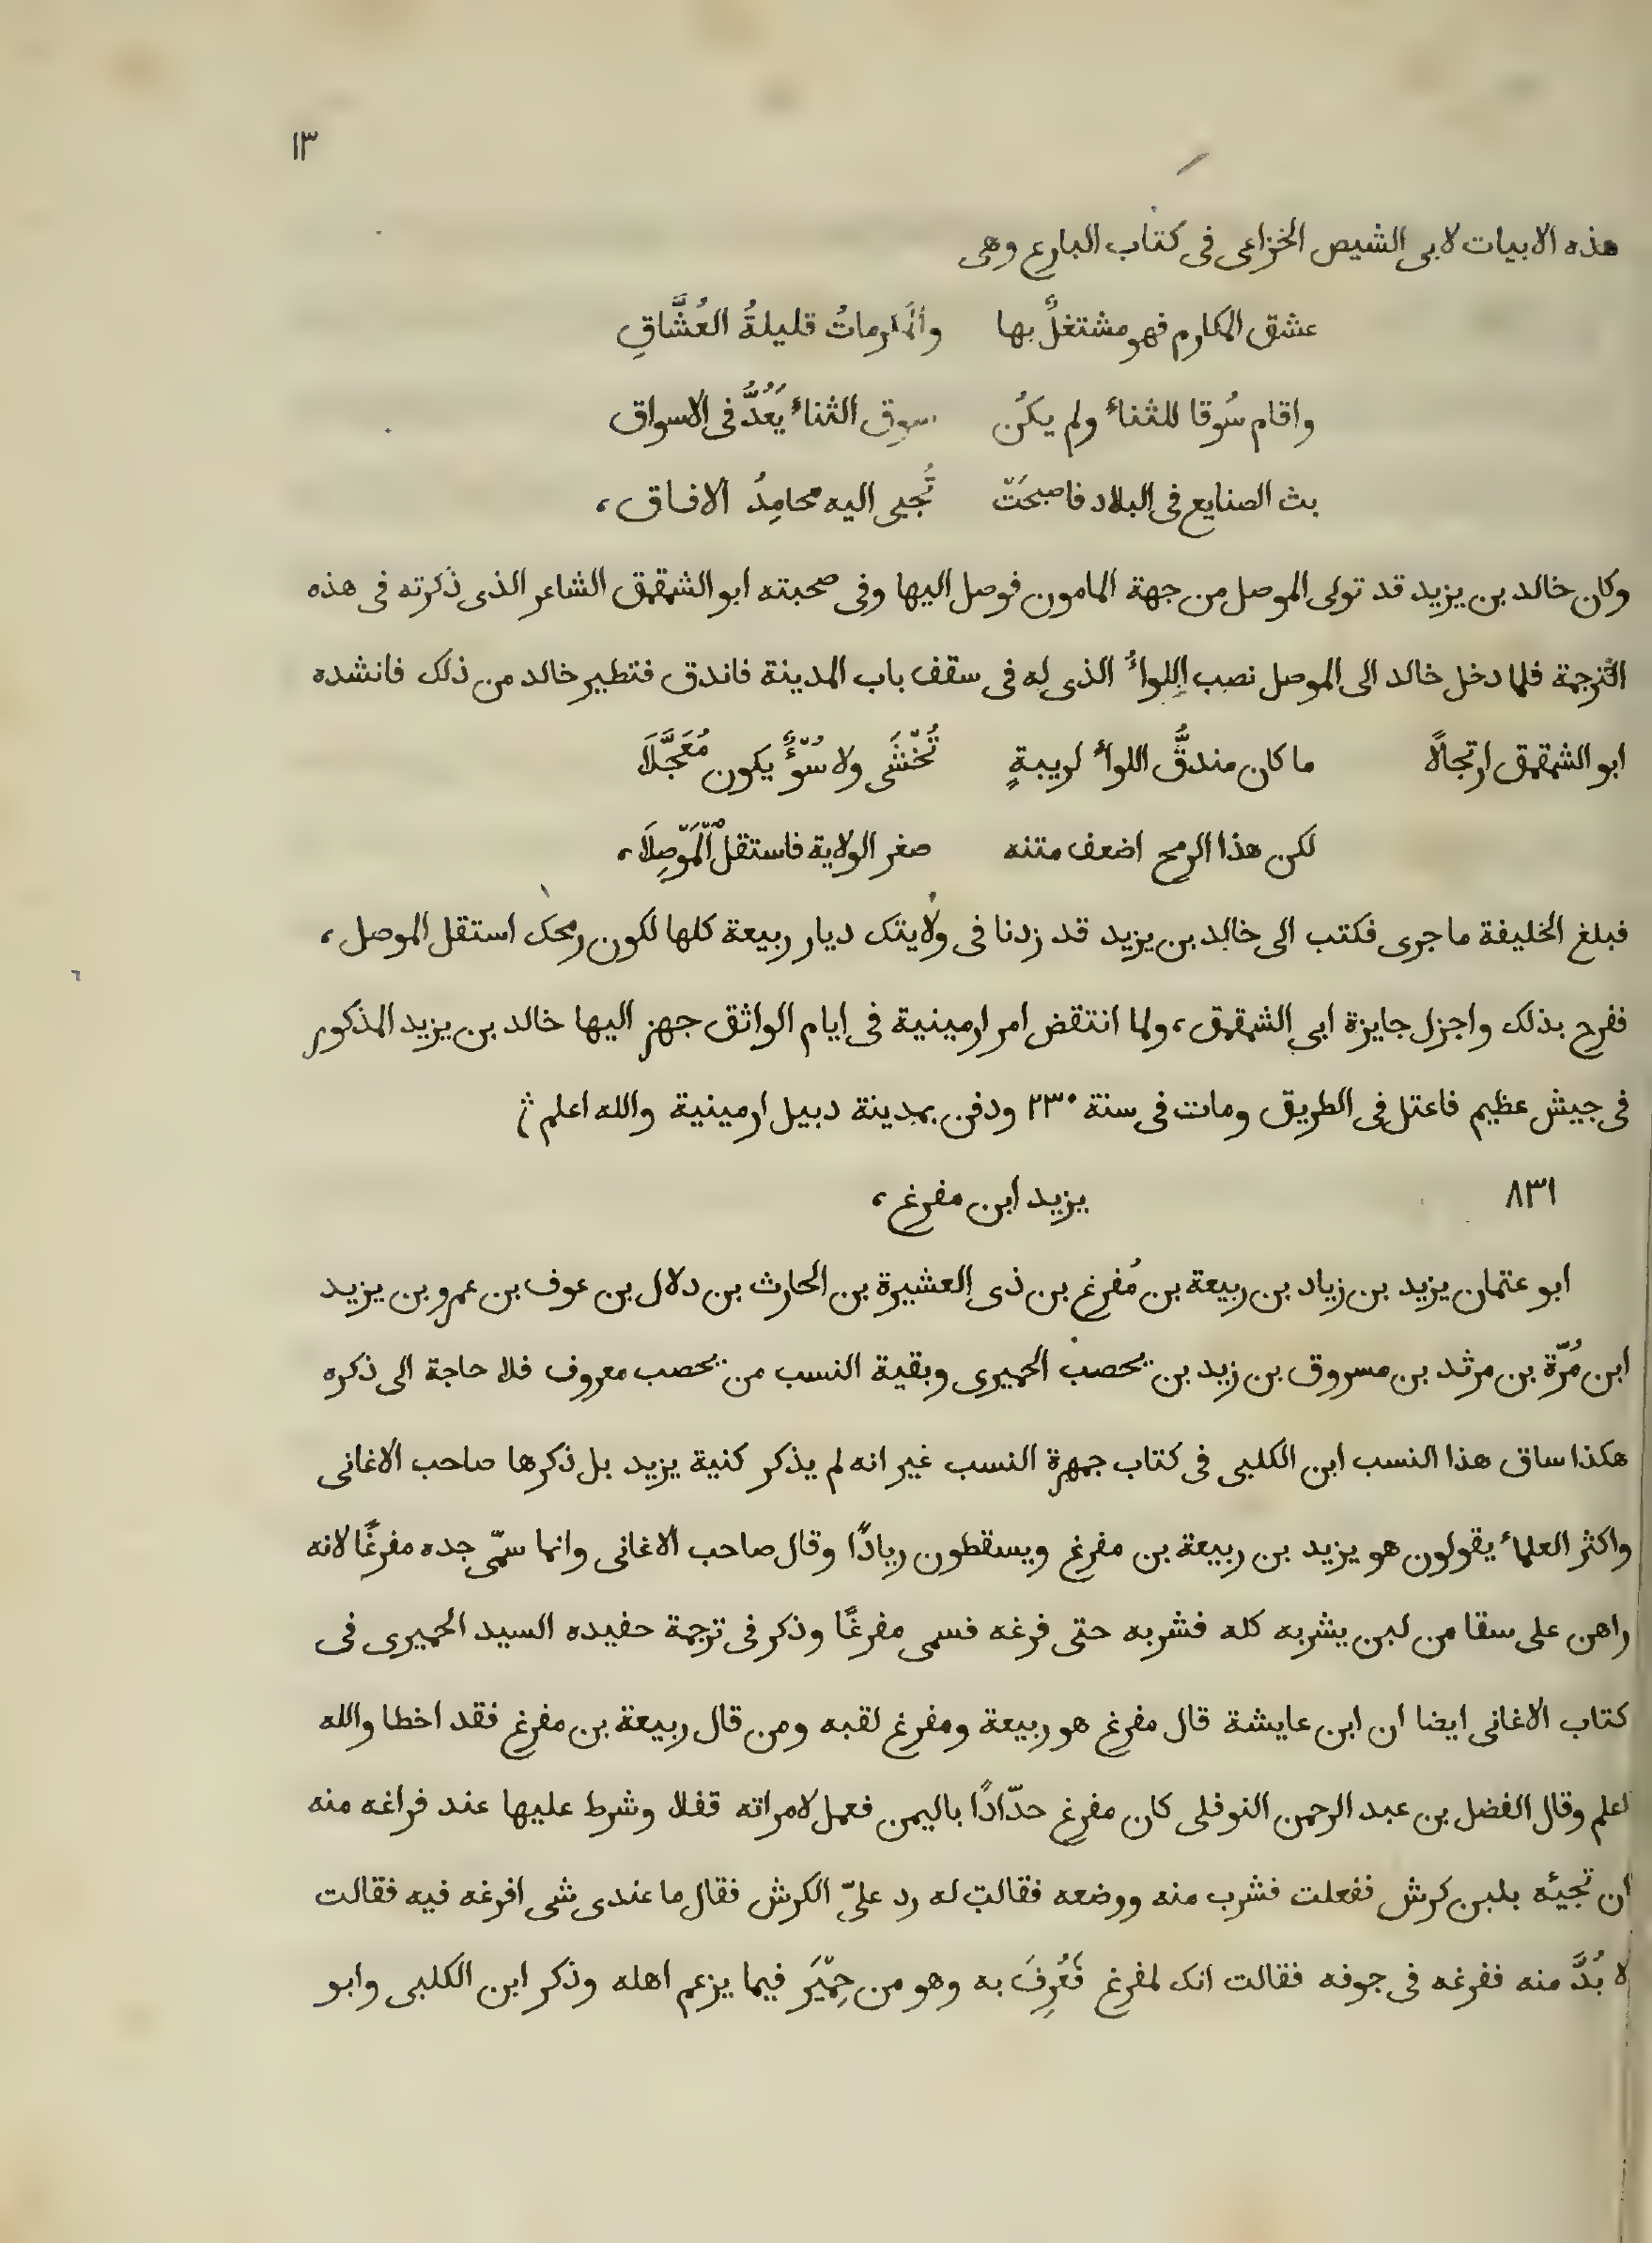 ١٣
هذه الابيات لابى الشيص الخزاعى فى كتاب البارع وهى
عشق المكارم فهو مشتغلٌ بها والمكرماتُ قليلةُ العُشَّاقِ
واقام سُوقا للثناء ولم يكُن سوق الثناء يَعُدُّ فى الاسواق
بث الصنايع فى البلاد فاصبحَتْ تُجبى اليه محامِدُ الافاق،
وكان خالد بن يزيد قد تولى الموصل من جهة المامون فوصل اليها وفى صحبته ابو الشمقمق الشاعر الذى ذكرته فى هذه
الترجمة فلما دخل خالد الى الموصل نصب اللواءُ الذى له فى سقف باب المدينة فاندق فتطير خالد من ذلك فانشده
ابو الشمقمق ارتجالًا ما كان مندقُّ اللواء لريبةٍ تُخْشَى ولا سُوْءٌ يكون مُعَجَّلَا
لكن هذا الرمح اضعف متنه صغر الولاية فاستقل المَوْصِلَا،
فبلغ الخليفة ما جرى فكتب الى خالد بن يزيد قد زدنا فى ولايتك ديار ربيعة كلها لكون رمحك استقل الموصل،
ففرح بذلك واجزل جايزة ابى الشمقمق، ولما انتقض امر ارمينية فى ايام الواثق جهز اليها خالد بن يزيد المذكور
فى جيش عظيم فاعتل فى الطريق ومات فى سنة ٢٣٠ ودفن بمدينة دبيل ارمينية والله اعلم
٨٣١ يزيد ابن مفرغ،
ابو عثمان يزيد بن زياد بن ربيعة بن مُفرغ بن ذى العشيرة بن الحارث بن دلال بن عوف بن عمرو بن يزيد
ابن مُرّة بن مرثد بن مسروق بن زيد بن يحصب الحميرى وبقية النسب من يحصب معروف فلا حاجة الى ذكره
هكذا ساق هذا النسب ابن الكلبى فى كتاب جمهرة النسب غير انه لم يذكر كنية يزيد بل ذكرها صاحب الاغانى
واكثر العلماء يقولون هو يزيد بن ربيعة بن مفرغ ويسقطون زيادًا وقال صاحب الاغانى وانما سمّى جده مفرغًا لانه
راهن على سقا من لبن يشربه كله فشربه حتى فرغه فسمى مفرغًا وذكر فى ترجمة حفيده السيد الحميرى فى
كتاب الاغانى ايضا ان ابن عايشة قال مفرغ هو ربيعة ومفرغ لقبه ومن قال ربيعة بن مفرغ فقد اخطا والله
اعلم وقال الفضل بن عبد الرحمن النوفلى كان مفرغ حدّادًا باليمن فعمل لامراته قفلا وشرط عليها عند فراغه منه
ان تجيئه بلبن كرش ففعلت فشرب منه ووضعه فقالت له رد علىّ الكرش فقال ما عندى شى افرغه فيه فقالت
لا بُدَّ منه ففرغه فى جوفه فقالت انك لمفرغ فَعُرِفَ به وهو من حِمْيَر فيما يزعم اهله وذكر ابن الكلبى وابو